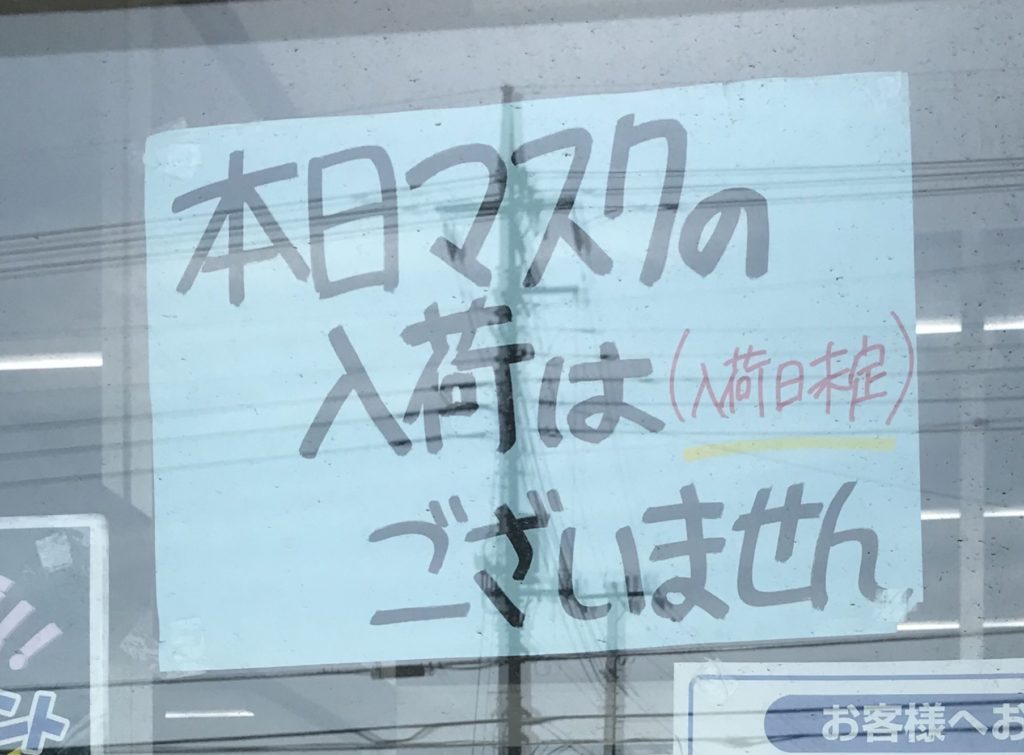 本日マスクの
入荷は(入荷日未定)
ございません
お客様へお
ント